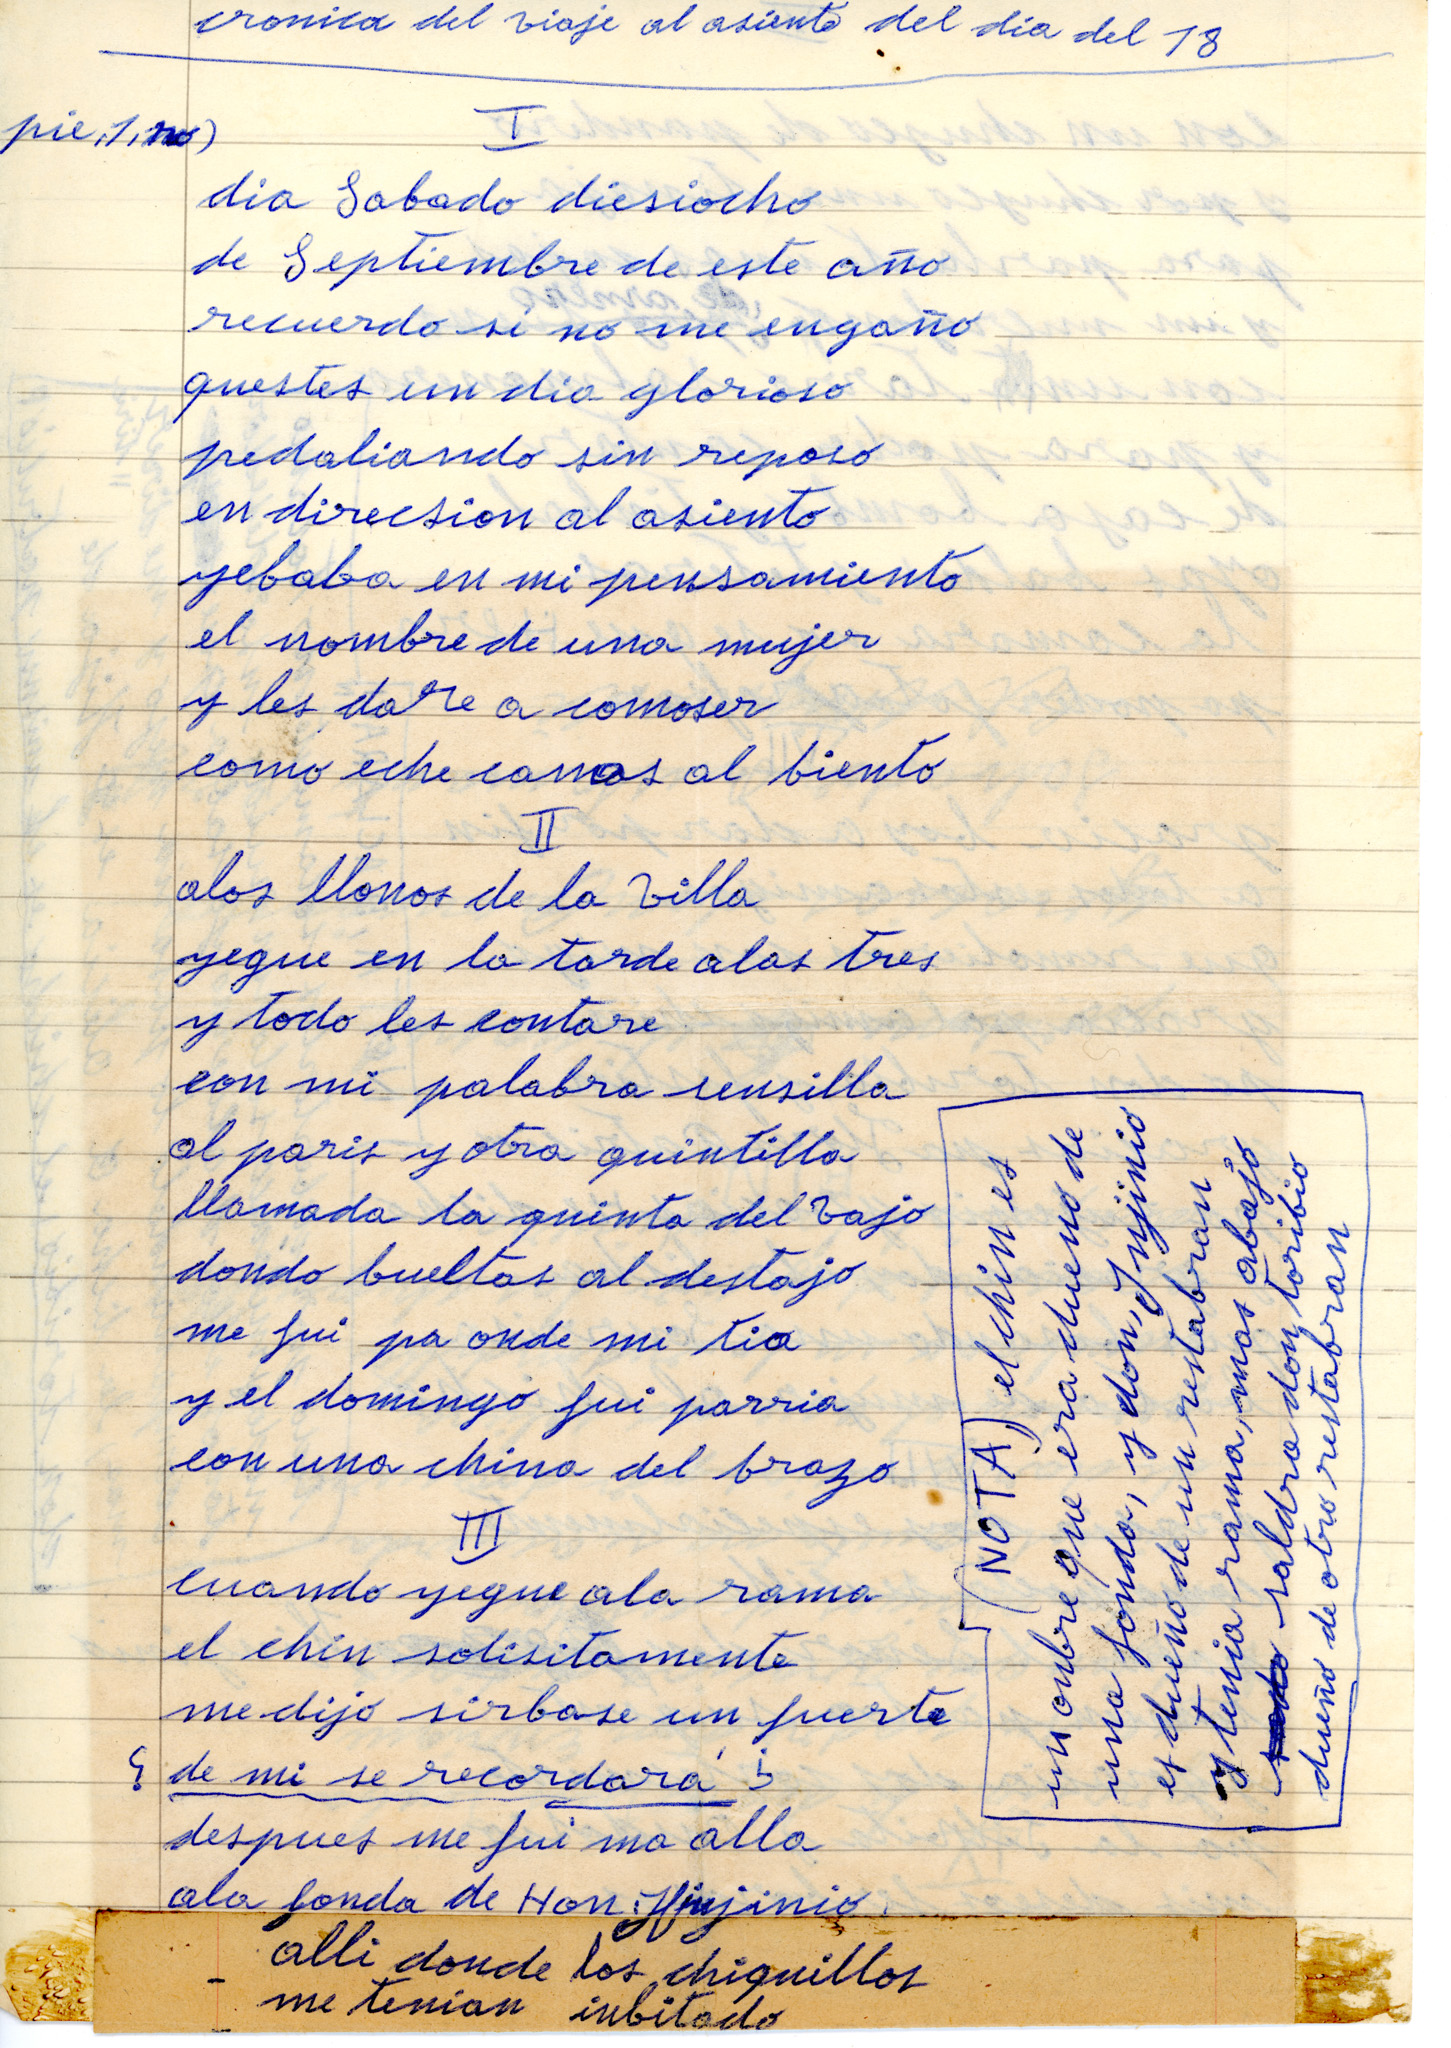 cronica del viaje al asiento del dia del 18
pie, 1, no)
I
dia Sabado diesiocho
de Septiembre de este año
recuerdo si no me engaño
questes un dia glorioso
pedaliando sin reposo
en direcsion al asiento
yebaba en mi pensamiento
el nombre de una mujer
y les dare a comoser
como eche canas al biento
II
alos llanos de la villa
yegue en la tarde alas tres
y todo les contare
con mi palabra sensilla
al paris y otra quintilla
llamada la quinta del vajo
dondo bueltas al destajo
me fui pa onde mi tia
y el domingo fui parria
con una china del brazo
III
cuando yegue ala rama
el chin solisitamente
me dijo sirbase un fuerte
¿ de mi se recordará ?
despues me fui ma alla
ala fonda de Hon Injinio
alli donde los chiquillos
me tenian inbitado
(NOTA) el chin es
un onbre que era dueño de
una fonda, y don, Injinio
es dueño de un restabran
y tenia rama, mas abajo
saldra don toribio
dueño de otro restabran